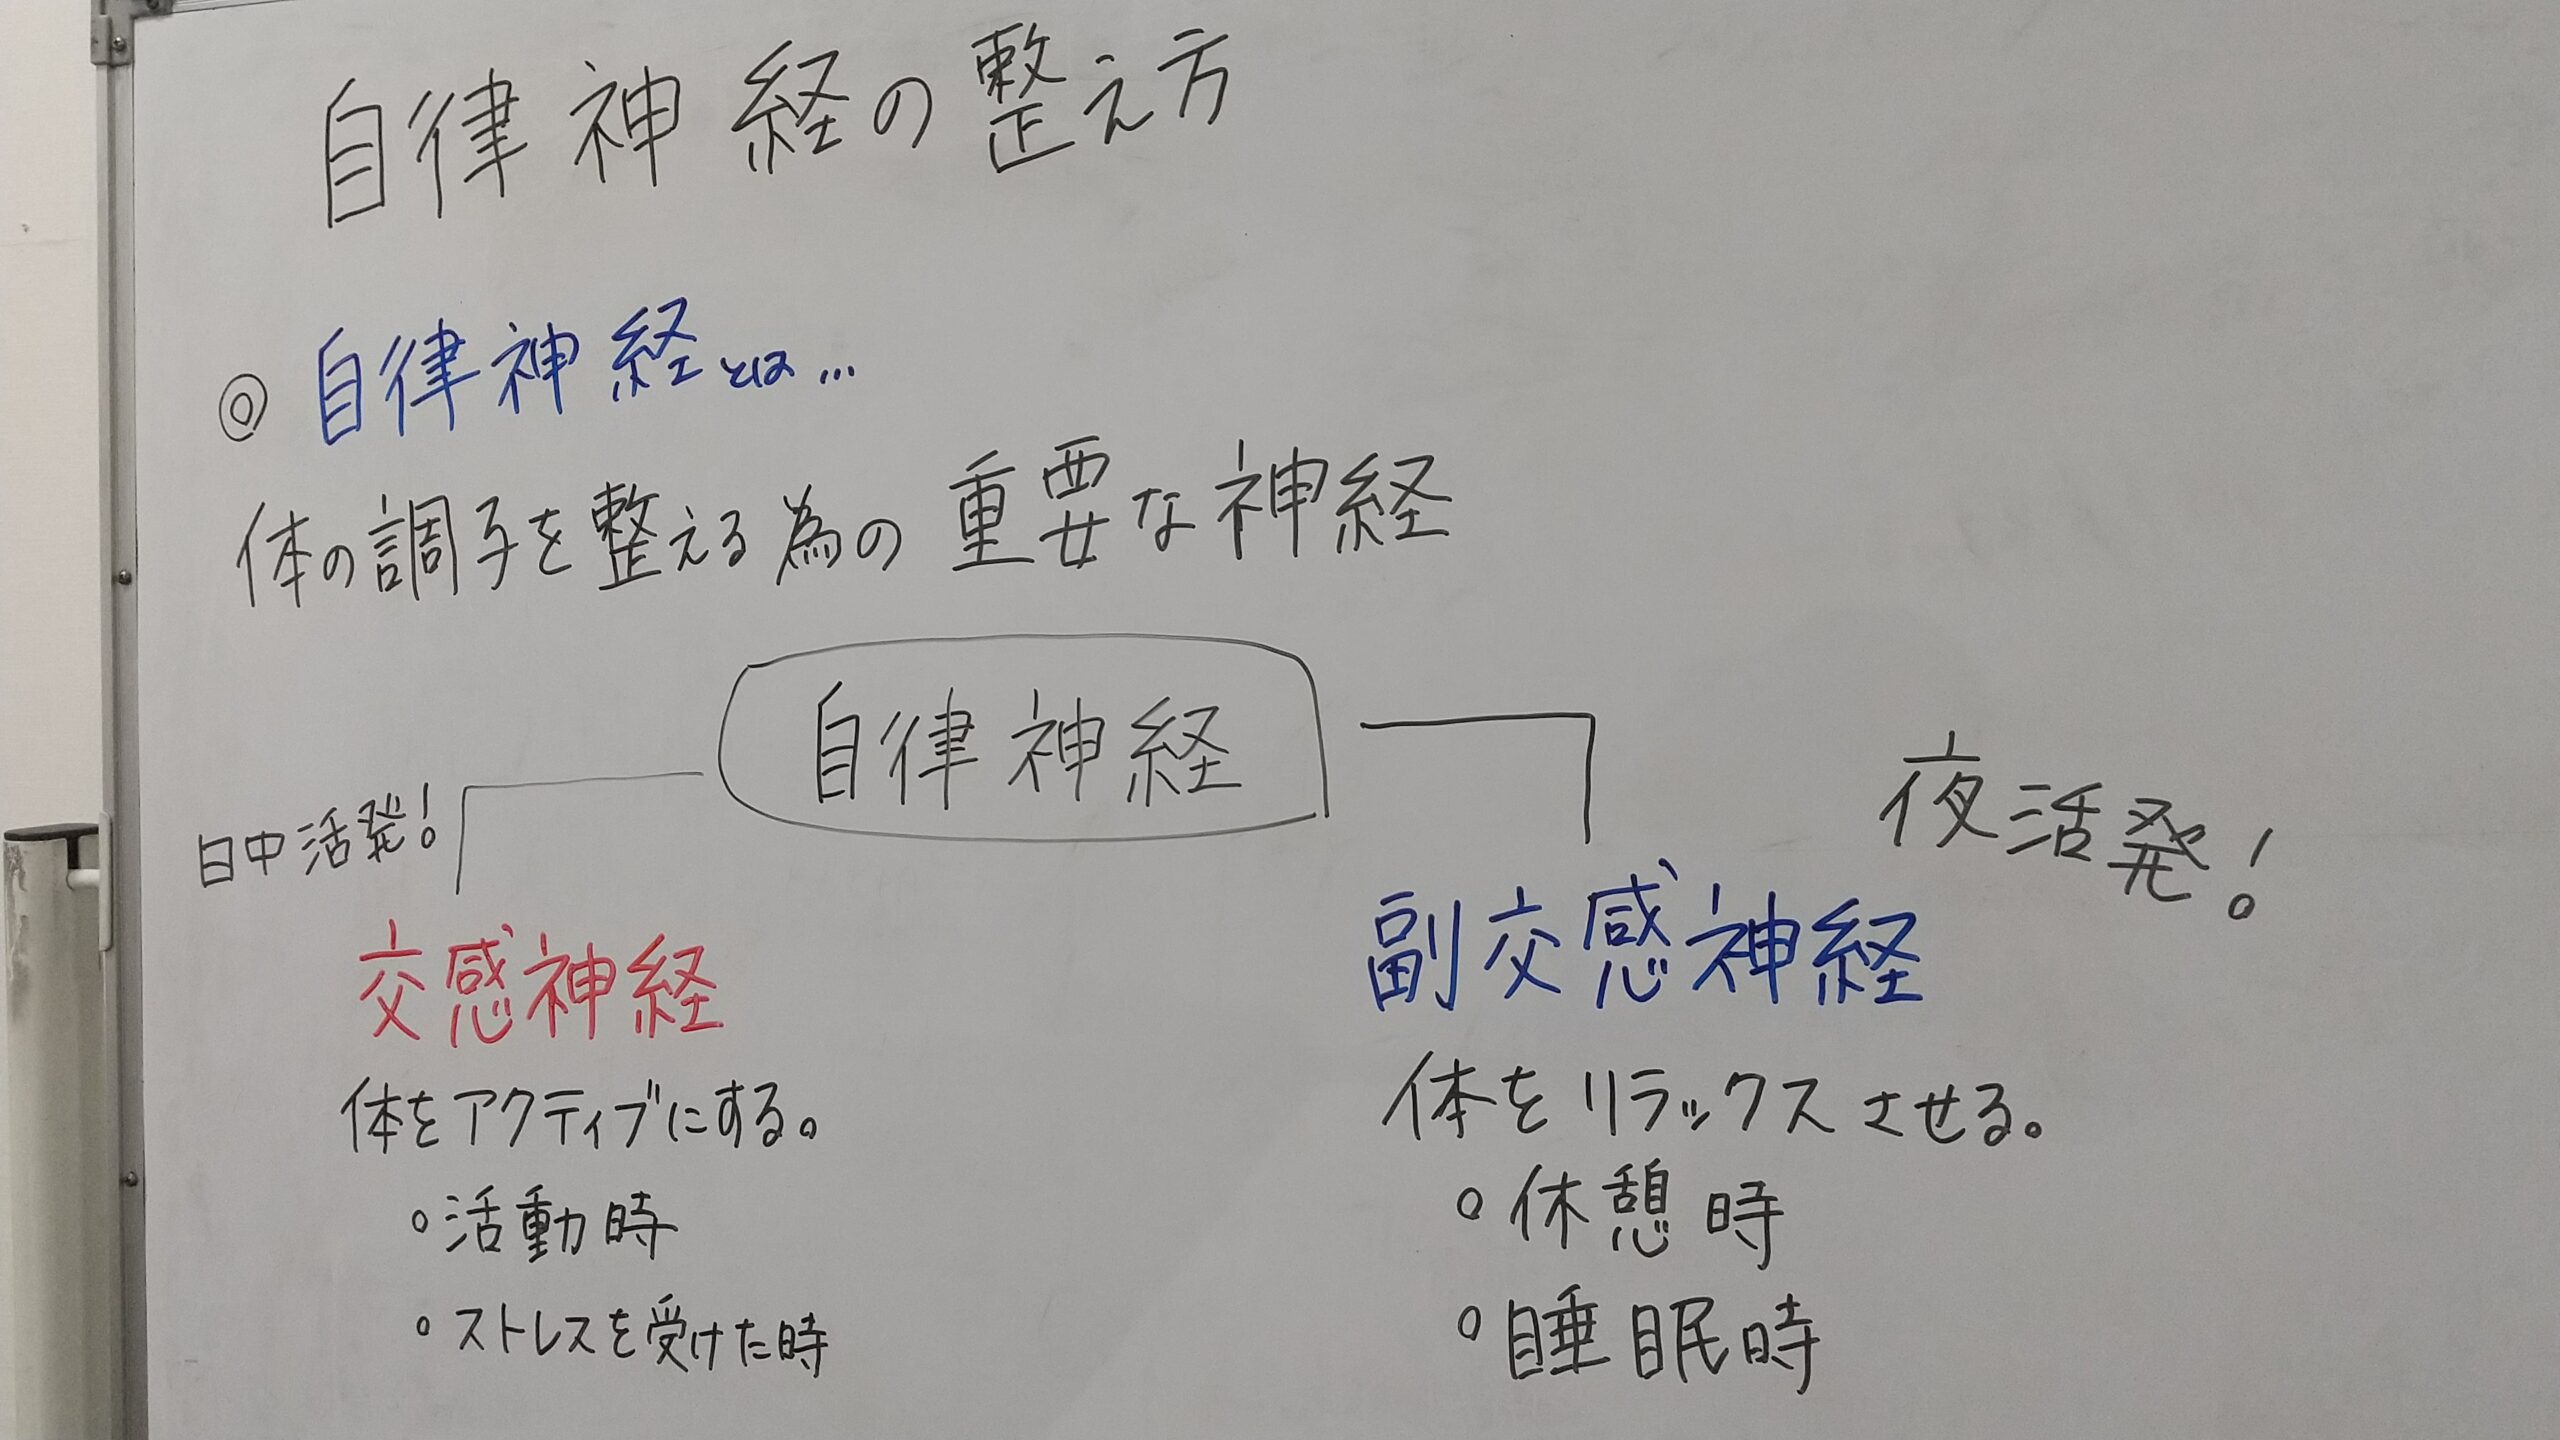 自律神経の整え方
◎ 自律神経とは…
体の調子を整える為の重要な神経
自律神経
日中活発!
夜活発!
交感神経
体をアクティブにする。
○活動時
○ストレスを受けた時
副交感神経
体をリラックスさせる。
○休憩時
○睡眠時